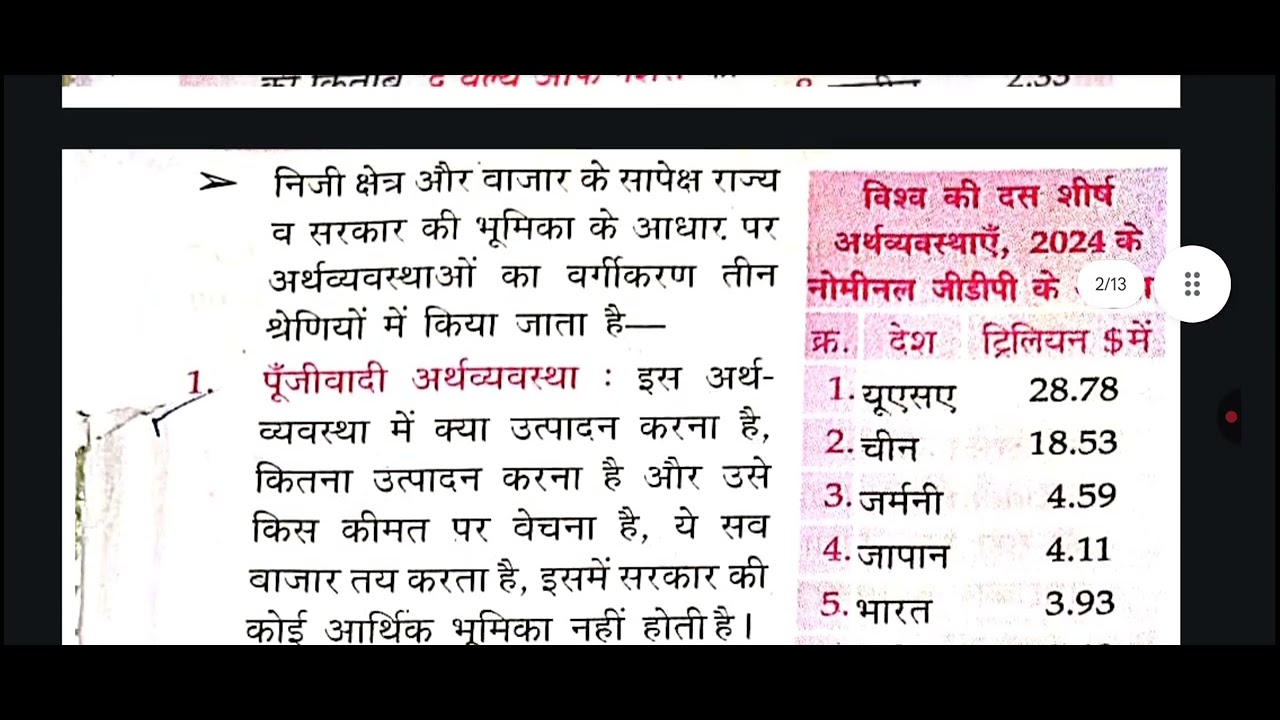 निजी क्षेत्र और बाजार के सापेक्ष राज्य
व सरकार की भूमिका के आधार पर
अर्थव्यवस्थाओं का वर्गीकरण तीन
श्रेणियों में किया जाता है—
1. पूँजीवादी अर्थव्यवस्था : इस अर्थ-
व्यवस्था में क्या उत्पादन करना है,
कितना उत्पादन करना है और उसे
किस कीमत पर बेचना है, ये सब
बाजार तय करता है, इसमें सरकार की
कोई आर्थिक भूमिका नहीं होती है।
विश्व की दस शीर्ष
अर्थव्यवस्थाएँ, 2024 के
नोमीनल जीडीपी के
2/13
क्र. देश ट्रिलियन $ में
1. यूएसए 28.78
2. चीन 18.53
3. जर्मनी 4.59
4. जापान 4.11
5. भारत 3.93